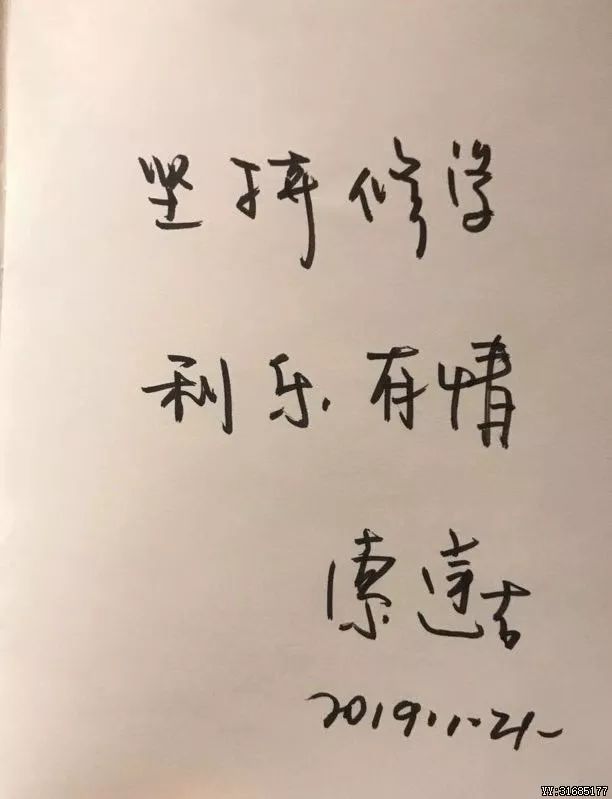 坚持修学
利乐有情
索达吉
2019.11.21
YY:31685177